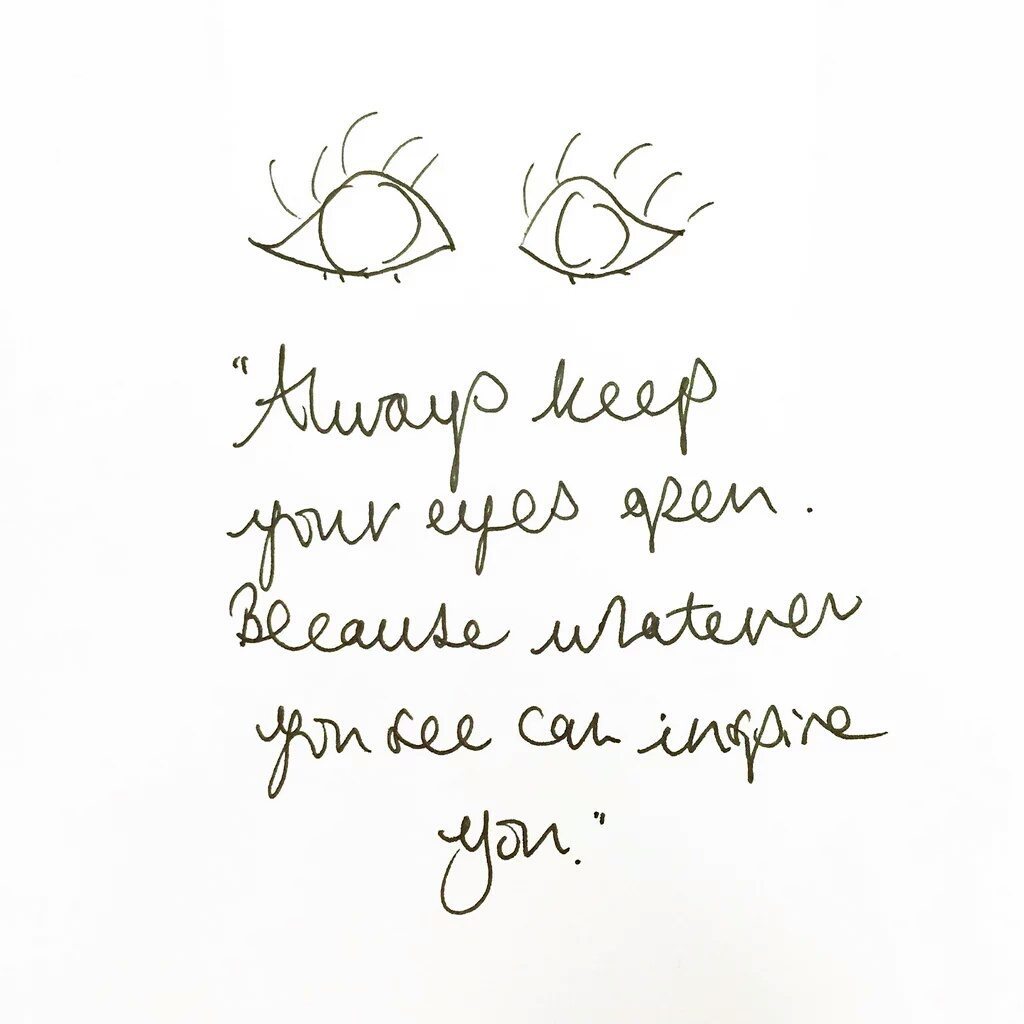 "Always keep
your eyes open.
Because whatever
you see can inspire
you."